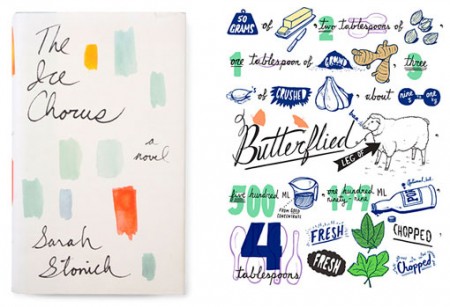 The
Ice
Chorus
a
novel
Sarah
Stonich
50 GRAMS of two tablespoons of
2
1 one tablespoon of GROUND three
3
's of CRUSHED about
Butterflied
LEG OF
five hundred ML one hundred ninety-nine ML
500
FROM FOOD CONCENTRATE
4
tablespoons
FRESH CHOPPED
FRESH Chopped